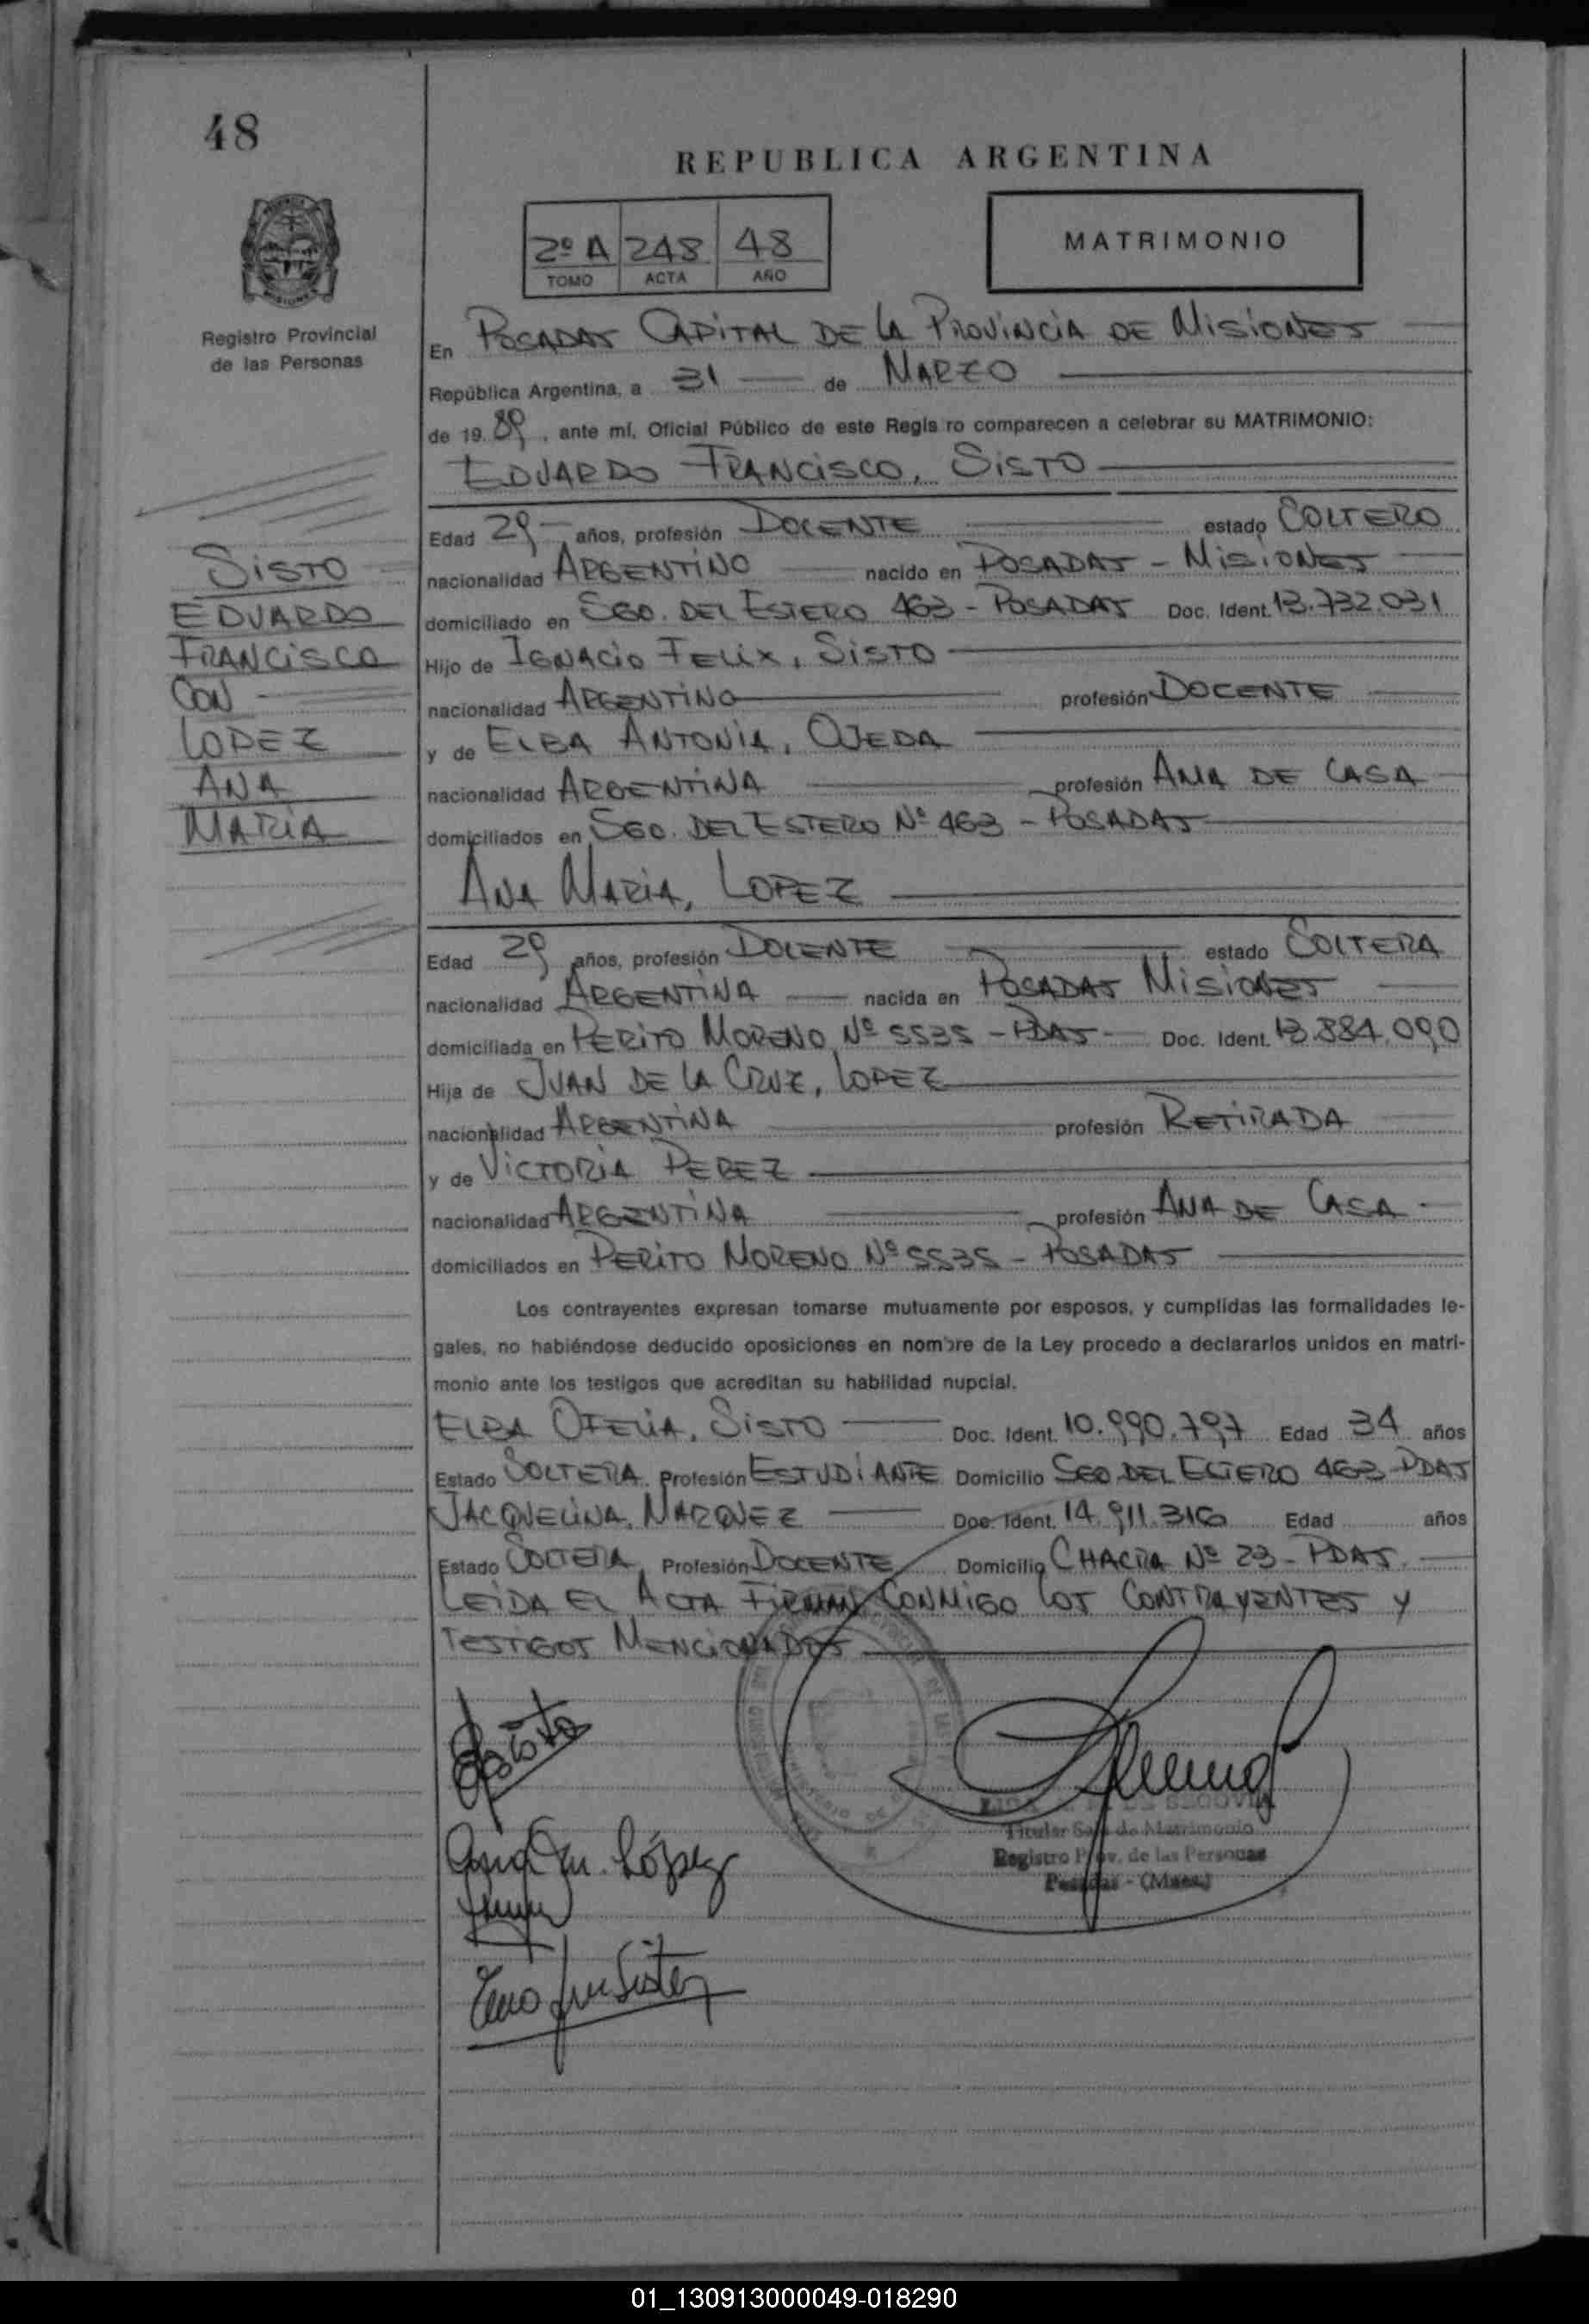 48
REPUBLICA ARGENTINA
2º A 248 48
TOMO ACTA AÑO
MATRIMONIO
Registro Provincial
de las Personas
En POSADAS CAPITAL DE LA PROVINCIA DE MISIONES
República Argentina, a 31 de MARZO
de 19 89, ante mí, Oficial Público de este Regis ro comparecen a celebrar su MATRIMONIO:
EDUARDO FRANCISCO, SISTO
Edad 29 años, profesión DOCENTE estado SOLTERO
nacionalidad ARGENTINO nacido en POSADAS - MISIONES
domiciliado en SGO. DEL ESTERO 463 - POSADAS Doc. Ident. 13.732.031
Hijo de IGNACIO FELIX, SISTO
nacionalidad ARGENTINO profesión DOCENTE
y de ELBA ANTONIA, OJEDA
nacionalidad ARGENTINA profesión AMA DE CASA
domiciliados en SGO. DEL ESTERO Nº 463 - POSADAS
SISTO
EDUARDO
FRANCISCO
CON
LOPEZ
ANA
MARIA
ANA MARIA, LOPEZ
Edad 29 años, profesión DOCENTE estado SOLTERA
nacionalidad ARGENTINA nacida en POSADAS MISIONES
domiciliada en PERITO MORENO Nº 5535 - PDAS Doc. Ident. 13.884.090
Hija de JUAN DE LA CRUZ, LOPEZ
nacionalidad ARGENTINA profesión RETIRADA
y de VICTORIA PEREZ
nacionalidad ARGENTINA profesión AMA DE CASA
domiciliados en PERITO MORENO Nº 5535 - POSADAS
Los contrayentes expresan tomarse mutuamente por esposos, y cumplidas las formalidades le-
gales, no habiéndose deducido oposiciones en nombre de la Ley procedo a declararlos unidos en matri-
monio ante los testigos que acreditan su habilidad nupcial.
ELBA OFELIA, SISTO Doc. Ident. 10.990.797 Edad 34 años
Estado SOLTERA Profesión ESTUDIANTE Domicilio SGO DEL ESTERO 463 PDAS
JACQUELINA, MARQUEZ Doc. Ident. 14.911.316 Edad años
Estado SOLTERA Profesión DOCENTE Domicilio CHACRA Nº 23 - PDAS.
LEIDA EL ACTA FIRMAN CONMIGO LOS CONTRAYENTES Y
TESTIGOS MENCIONADOS
Sisto
Ana M. López
Titular Sala de Matrimonio
Registro Prov. de las Personas
Posadas - (Mnes.)
01_130913000049-018290